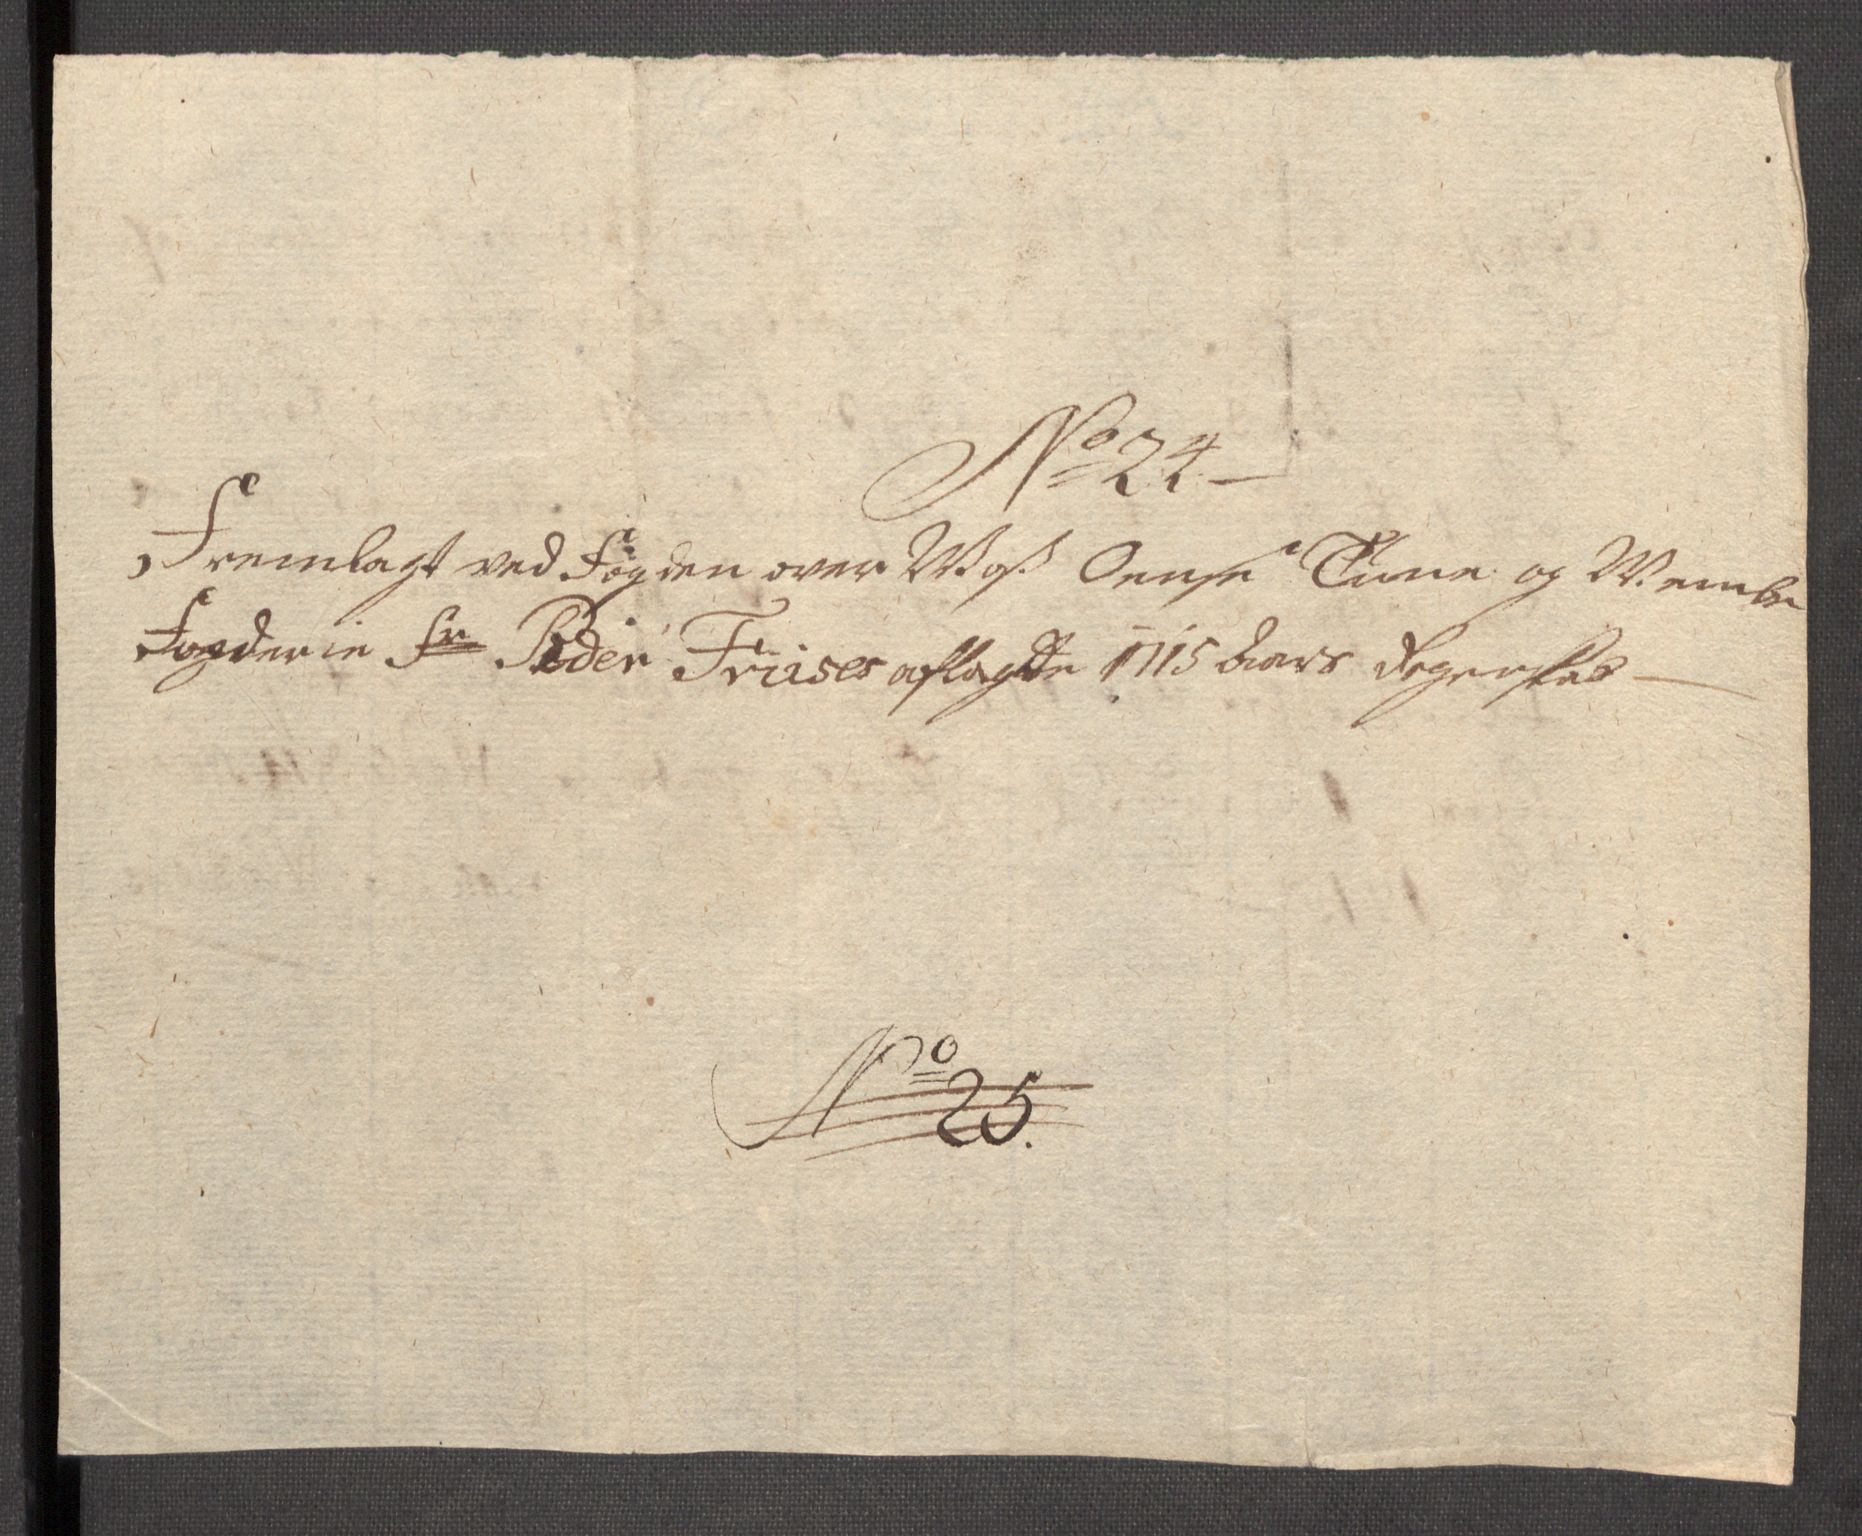 No 24
Fremlagt ved Fogden over Moss Oensø Tune og Wemble
Fogderie Sr Peder Friises aflagte 1715 Aars Regenskab
No 25.